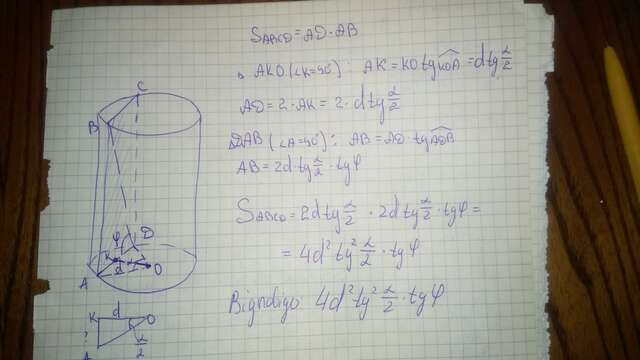 S_ABCD = AD · AB
AKO (∠K=90°): AK = KO tg KOA = d tg α/2
AD = 2 · AK = 2 · d tg α/2
DAB (∠A=90°): AB = AD tg ADB
AB = 2d tg α/2 · tg φ
S_ABCD = 2d tg α/2 · 2d tg α/2 · tg φ =
= 4d² tg² α/2 · tg φ
Вignдigo 4d² tg² α/2 · tg φ
C
B
φ D
K
d
A O
K d O
?
A α/2